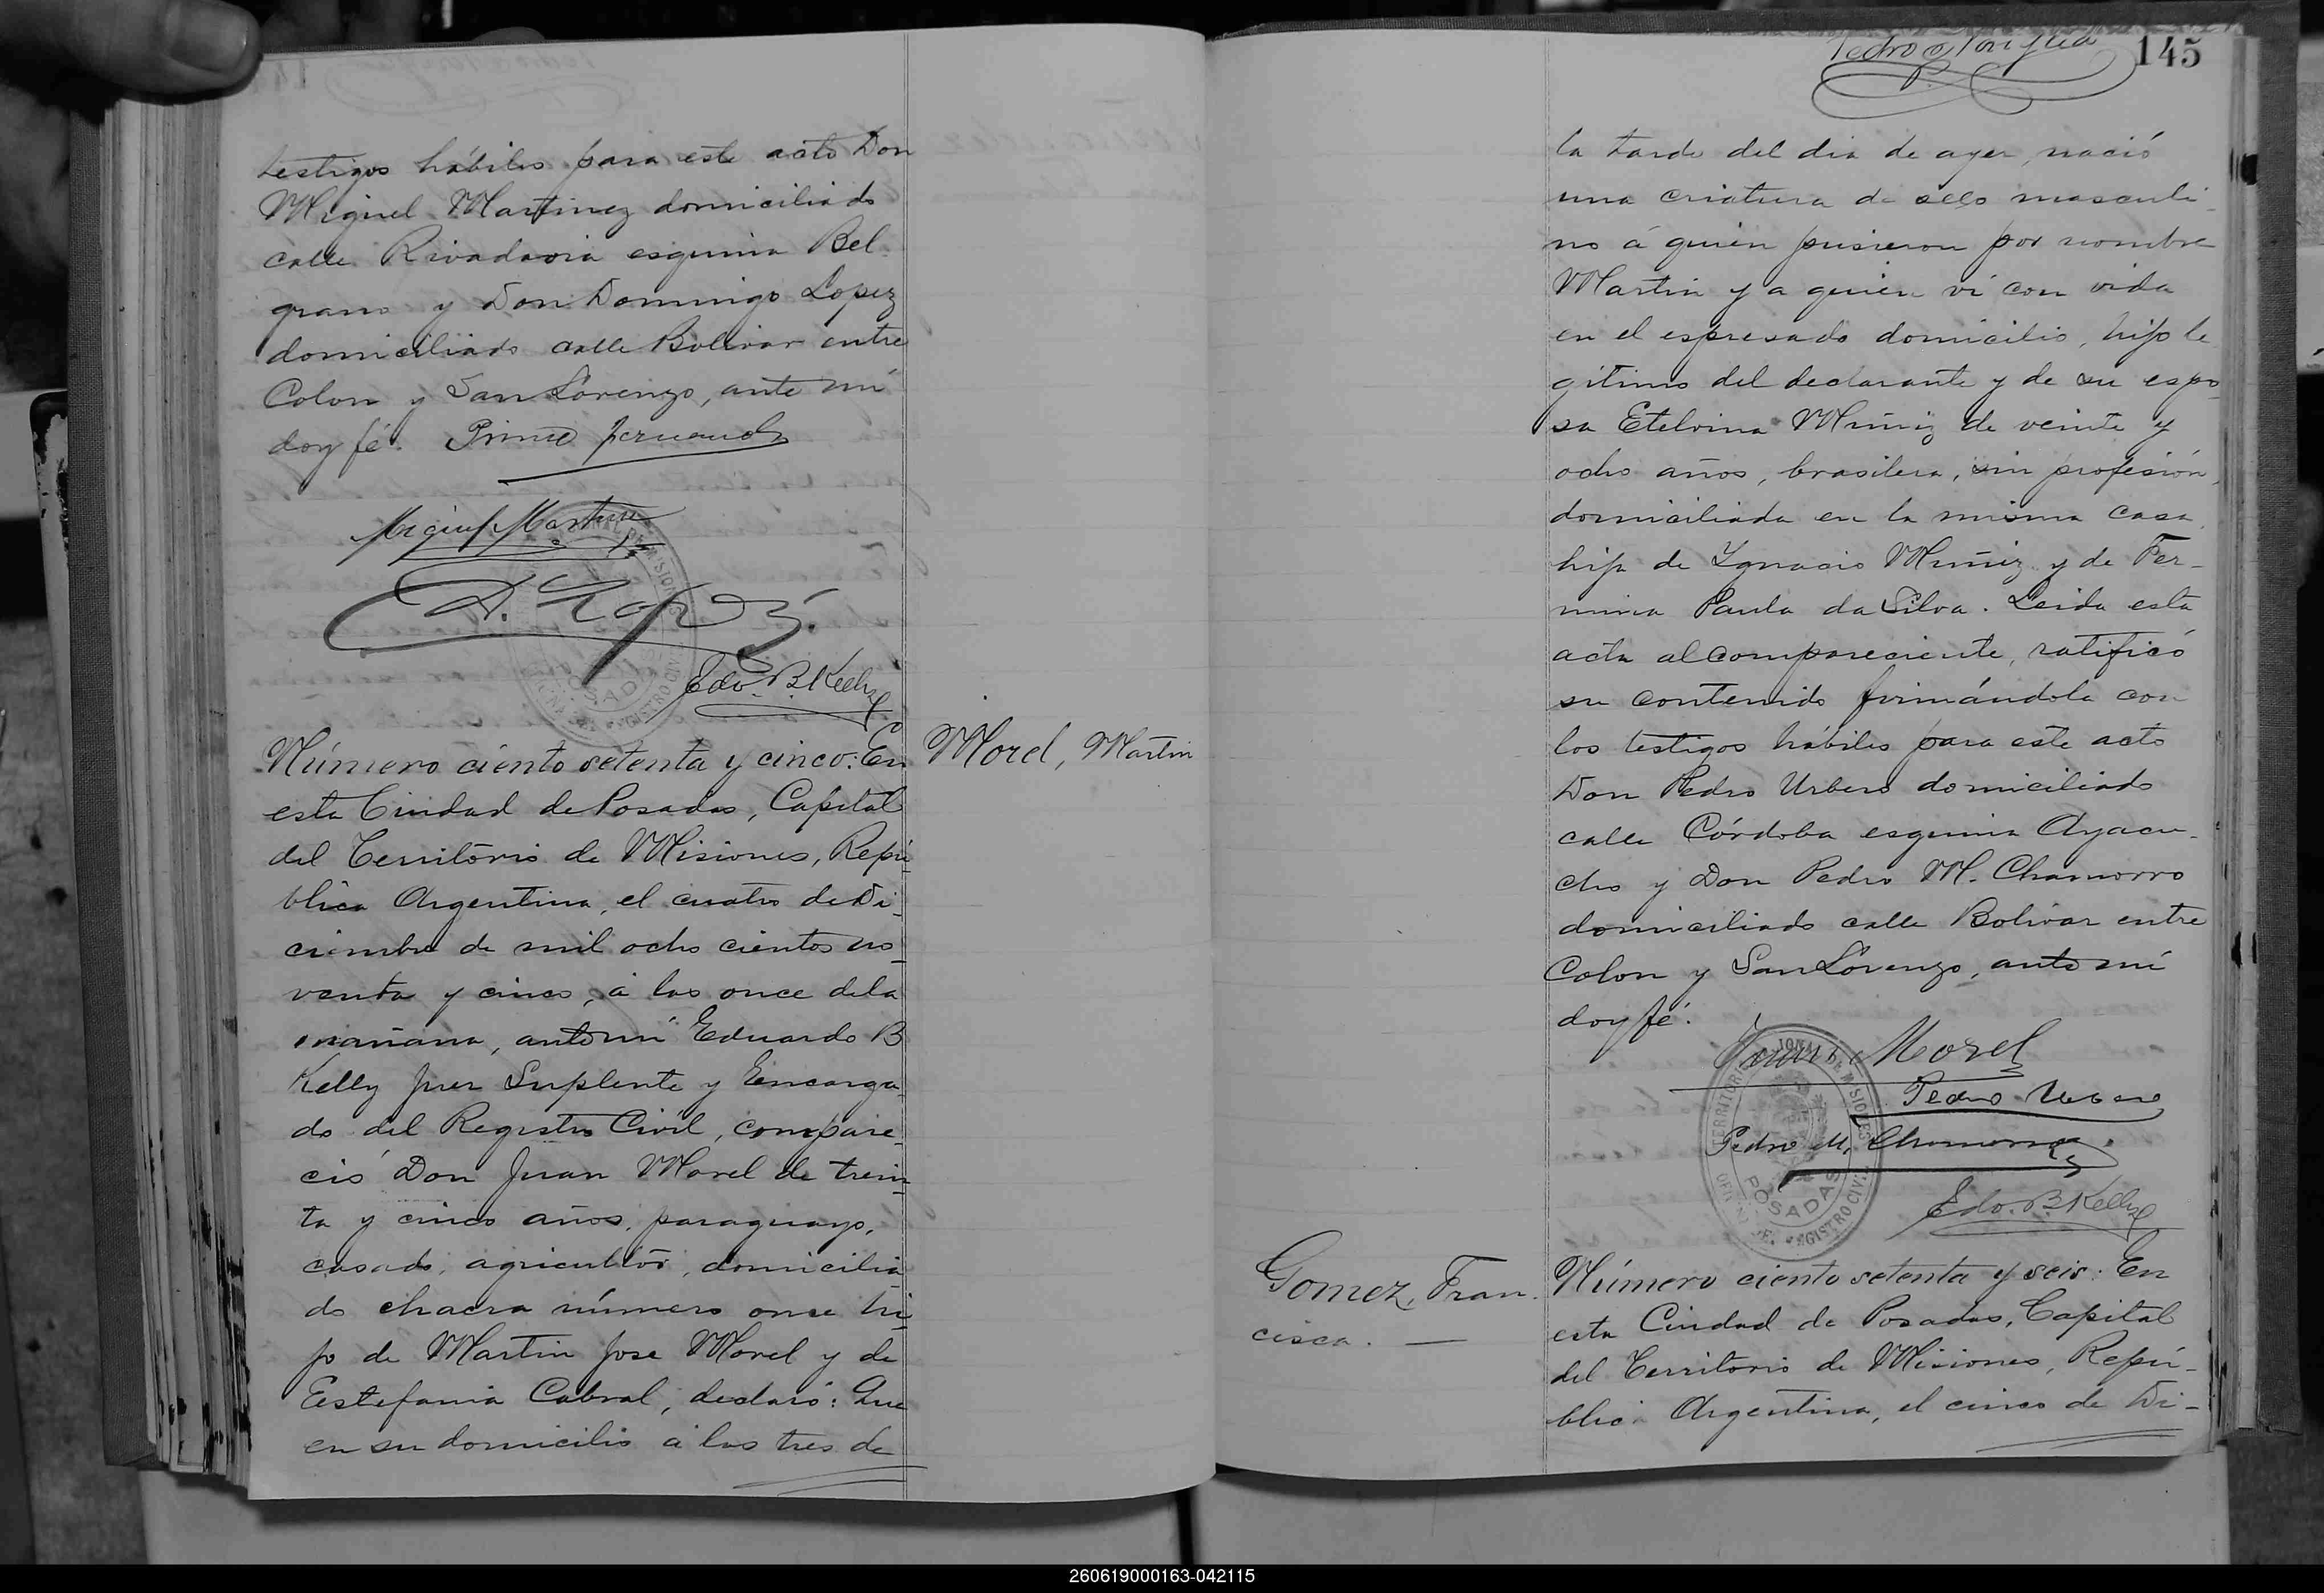 testigos hábiles para este acto Don
Miguel Martinez domiciliado
calle Rivadavia esquina Bel-
grano y Don Domingo Lopez
domiciliado calle Bolivar entre
Colon y San Lorenzo, ante mi
doy fé.
Miguel Martinez
D. Lopez
Edo. B. Kelly
Número ciento setenta y cinco: En
esta Ciudad de Posadas, Capital
del Territorio de Misiones, Repú-
blica Argentina, el cuatro de Di-
ciembre de mil ocho cientos no-
venta y cinco, á las once de la
mañana, ante mi Eduardo B
Kelly Juez Suplente y Encarga-
do del Registro Civil, compare-
ció Don Juan Morel de trein-
ta y cinco años, paraguayo,
casado, agricultor, domicilia
do chacra número once hi-
jo de Martin Jose Morel y de
Estefania Cabral, declaró: Que
en su domicilio á las tres de
Morel, Martin
145
la tarde del dia de ayer, nació
una criatura de secso masculi-
no á quien pusieron por nombre
Martin y a quien ví con vida
en el espresado domicilio, hijo le
gítimo del declarante y de su espo-
sa Etelvina Muñiz de veinte y
ocho años, brasilera, sin profesión,
domiciliada en la misma casa,
hija de Ygnacio Muñiz y de Fer-
mina Paula da Silva. Leida esta
acta al compareciente, ratificó
su contenido firmándola con
los testigos hábiles para este acto
Don Pedro Urbero domiciliado
calle Córdoba esquina Ayacu-
cho y Don Pedro M. Chamorro
domiciliado calle Bolivar entre
Colon y San Lorenzo, ante mi
doy fé.
Juan Morel
Pedro Urbero
Pedro M. Chamorro
POSADAS
REGISTRO CIVIL
Edo. B. Kelly
Gomez, Fran-
cisca. —
Número ciento setenta y seis: En
esta Ciudad de Posadas, Capital
del Territorio de Misiones, Repú-
blica Argentina, el cinco de Di-
260619000163-042115